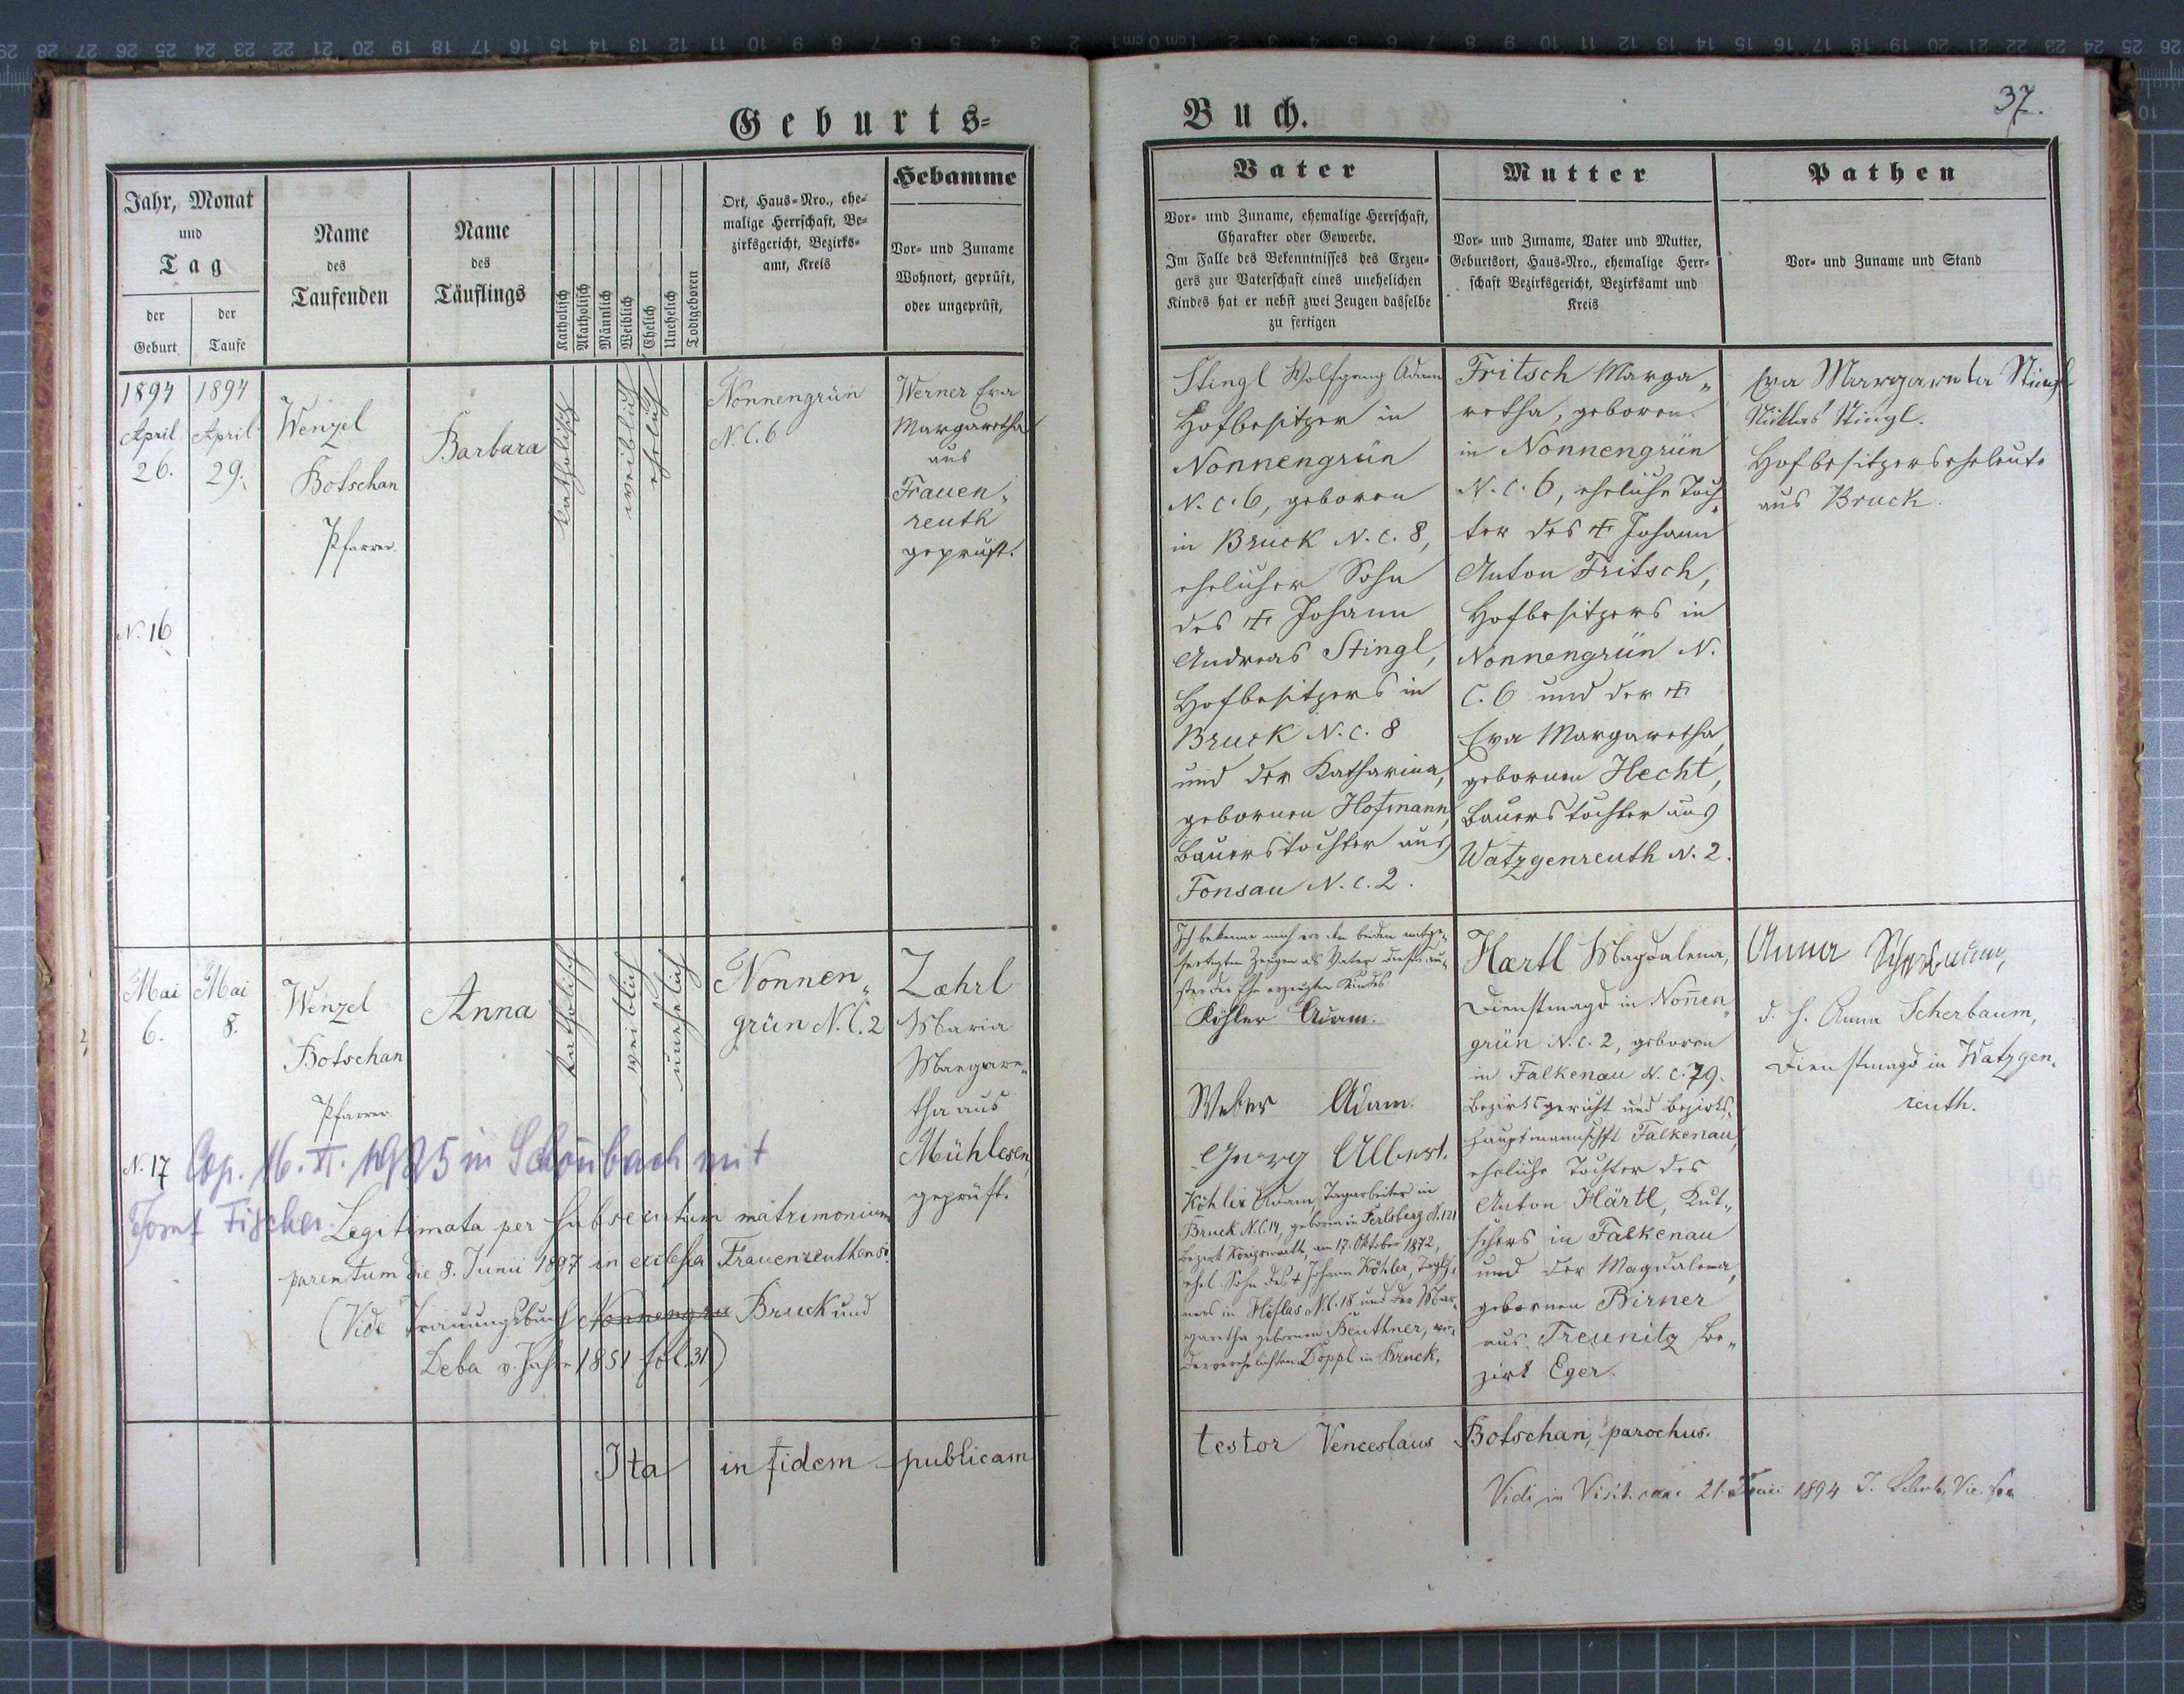 Geburts-
Jahr, Monat
und
Tag
der Geburt
der Taufe
Name
des
Taufenden
Name
des
Täuflings
Katholisch
Akatholisch
Männlich
Weiblich
Ehelich
Unehelich
Todtgeboren
Ort, Haus-Nro., ehe-
malige Herrschaft, Be-
zirksgericht, Bezirks-
amt, Kreis
Hebamme
Vor- und Zuname
Wohnort, geprüft,
oder ungeprüft,
1894
April
26.
N. 16
1894
April
29.
Wenzel
Botschan
Pfarrer.
Barbara
katholisch
weiblich
ehelich
Nonnengrün
N. C. 6
Werner Eva
Margaretha
aus
Frauen-
reuth
geprüft.
Mai
6.
N. 17
Mai
8.
Wenzel
Botschan
Pfarrer.
Anna
katholisch
weiblich
unehelich
Nonnen„
grün N. C. 2
Zæhrl
Maria
Margare„
tha aus
Mühlesen,
geprüft.
Cop. 16. II. 1925 in Schönbach mit
Josef Fischer
Legitimata per subsecutum matrimonium
parentum die 8. Junii 1897 in ecclesia Frauenreuthensi
(Vide Trauungsbuch Nonnengrü Bruck und
Deba v. Jahre 1851 fol. 31)
Ita in fidem publicam
Buch.
37.
Vater
Vor- und Zuname, ehemalige Herrschaft,
Charakter oder Gewerbe.
Im Falle des Bekenntnisses des Erzeu-
gers zur Vaterschaft eines unehelichen
Kindes hat er nebst zwei Zeugen dasselbe
zu fertigen
Mutter
Vor- und Zuname, Vater und Mutter,
Geburtsort, Haus-Nro., ehemalige Herr-
schaft Bezirksgericht, Bezirksamt und
Kreis
Pathen
Vor- und Zuname und Stand
Stingl Wolfgang Adam
Hofbesitzer in
Nonnengrün
N. C. 6, geboren
in Bruck N. C. 8,
ehelicher Sohn
des ✠ Johann
Andreas Stingl,
Hofbesitzers in
Bruck N. C. 8
und der Katharina,
gebornen Hofmann,
Bauerstochter aus
Fonsau N. C. 2.
Fritsch Marga„
retha, geboren
in Nonnengrün
N. C. 6, eheliche Toch„
ter des ✠ Johann
Anton Fritsch,
Hofbesitzers in
Nonnengrün N.
C. 6 und der ✠
Eva Margaretha,
gebornen Hecht,
Bauerstochter aus
Watzgenreuth N. 2.
Eva Margaretha Stingl
Niklas Stingl.
Hofbesitzerseheleute
aus Bruck.
Ich bekenne mich vor den beiden mitge„
fertigten Zeugen als Vater dieses au„
ßer der Ehe erzeugten Kindes
Köhler Adam.
Weber Adam.
Georg Albert.
Köhler Adam, Tagarbeiter in
Bruck N. C. 14, geboren in Perlsberg N. 121
Bezirk Königswarth, am 17. Oktober 1872,
ehel. Sohn des ✝ Johann Köhler, Taglöh„
ners in Höflas N. C. 18 und der Mar„
garetha gebornen Beuthner, wie„
derverehelichten Doppl in Bruck.
Hærtl Magdalena,
Dienstmagd in Nonnen„
grün N. C. 2, geboren
in Falkenau N. C. 79.
Bezirksgericht und Bezirks„
hauptmannschft Falkenau,
eheliche Tochter des
Anton Härtl, Kut„
schers in Falkenau
und der Magdalena,
gebornen Birner
aus Treunitz Be„
zirk Eger.
Anna Scherbaum,
d. h. Anna Scherbaum,
Dienstmagd in Watzgen„
reuth.
testor Venceslaus Botschan, parochus.
Vidi in Visit. can. 21. Junii 1894